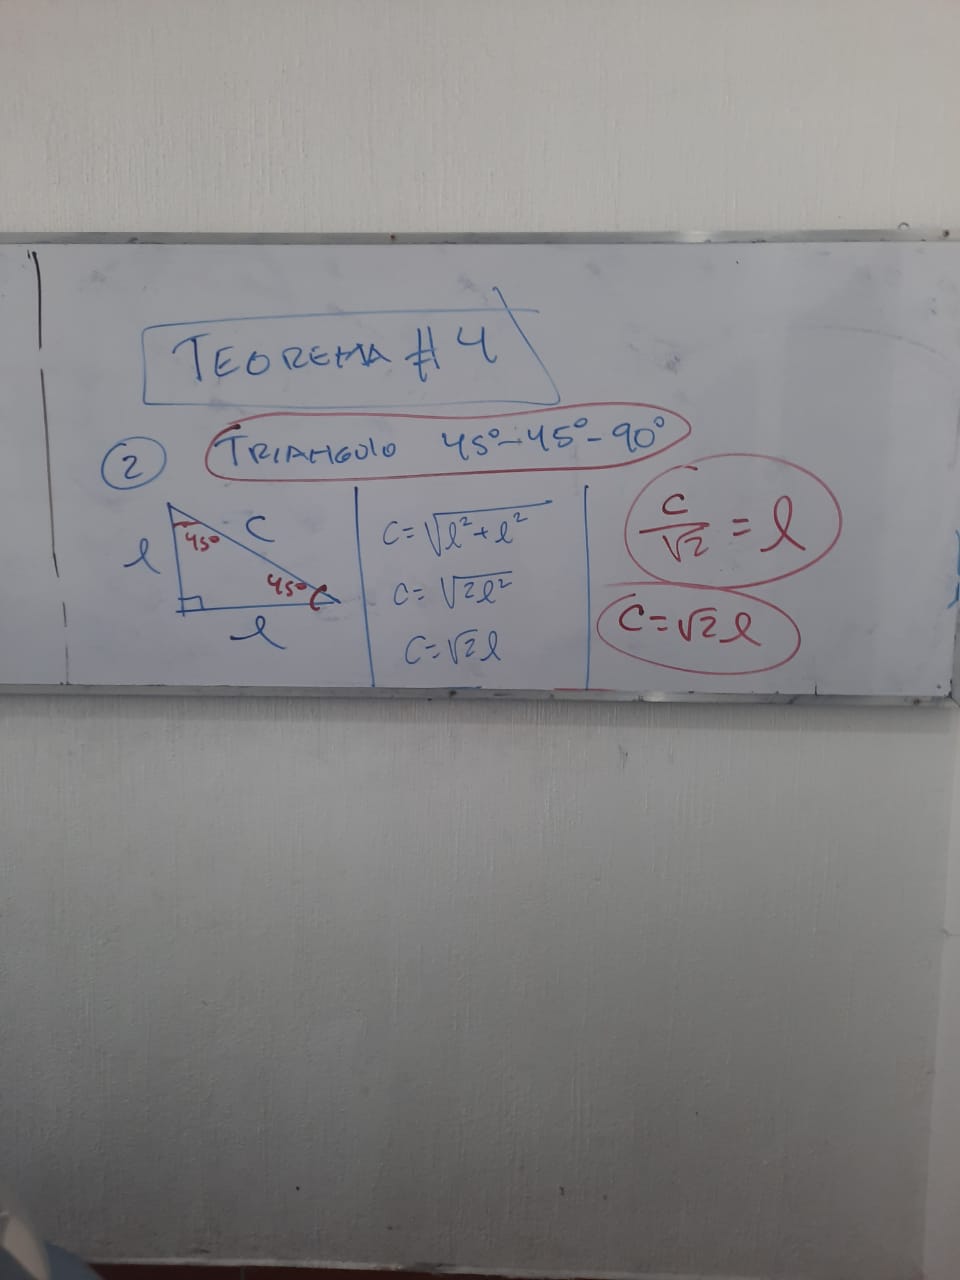 TEOREMA # 4
2 TRIANGULO 45°-45°-90°
l
45°
c
45°
l
C=√l²+l²
C=√2l²
C=√2 l
C/√2 = l
C=√2 l